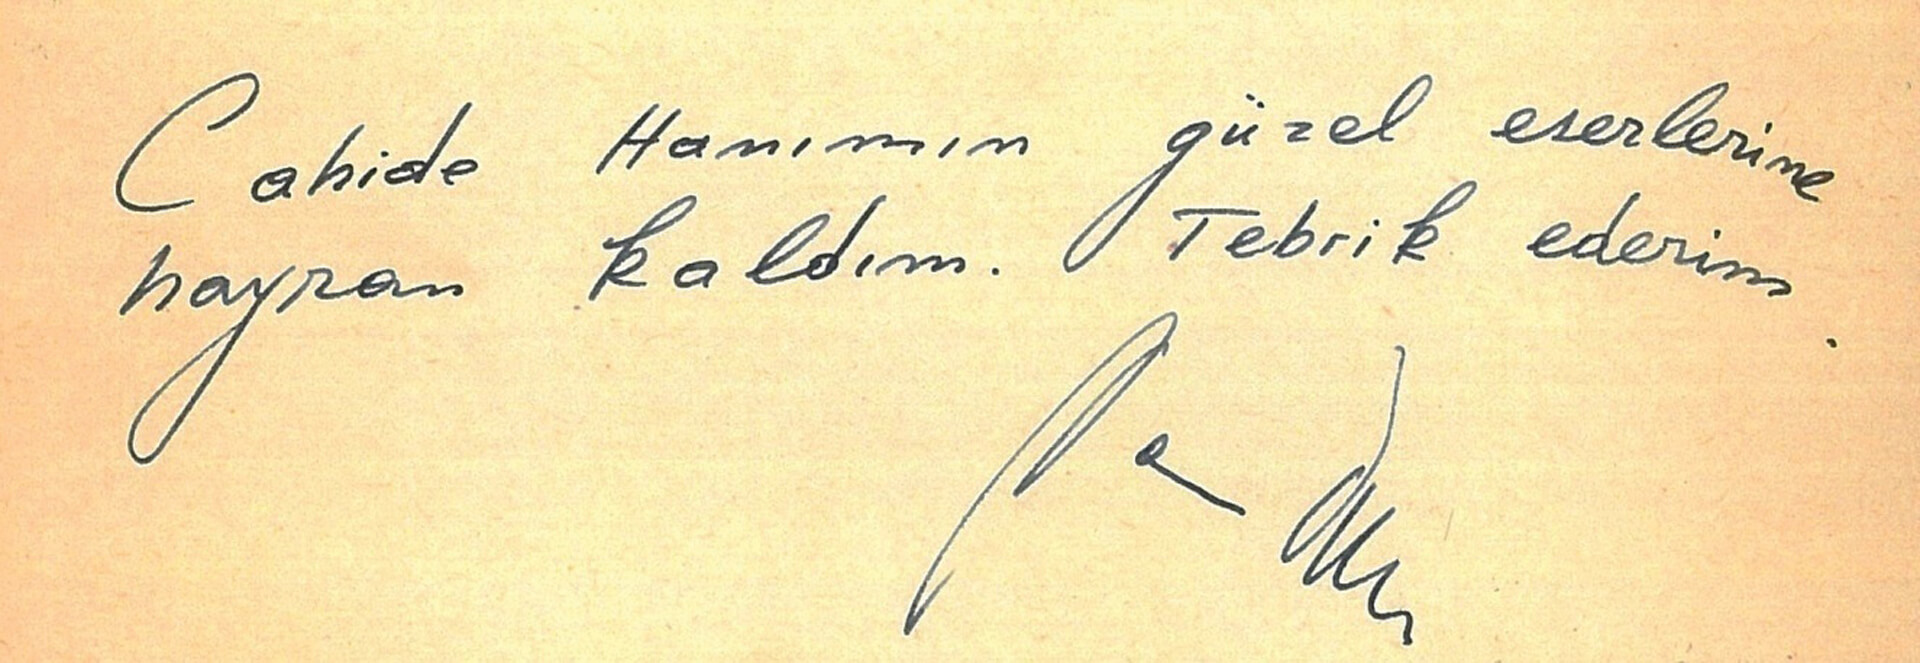 Cahide Hanımın güzel eserlerine
hayran kaldım. Tebrik ederim.